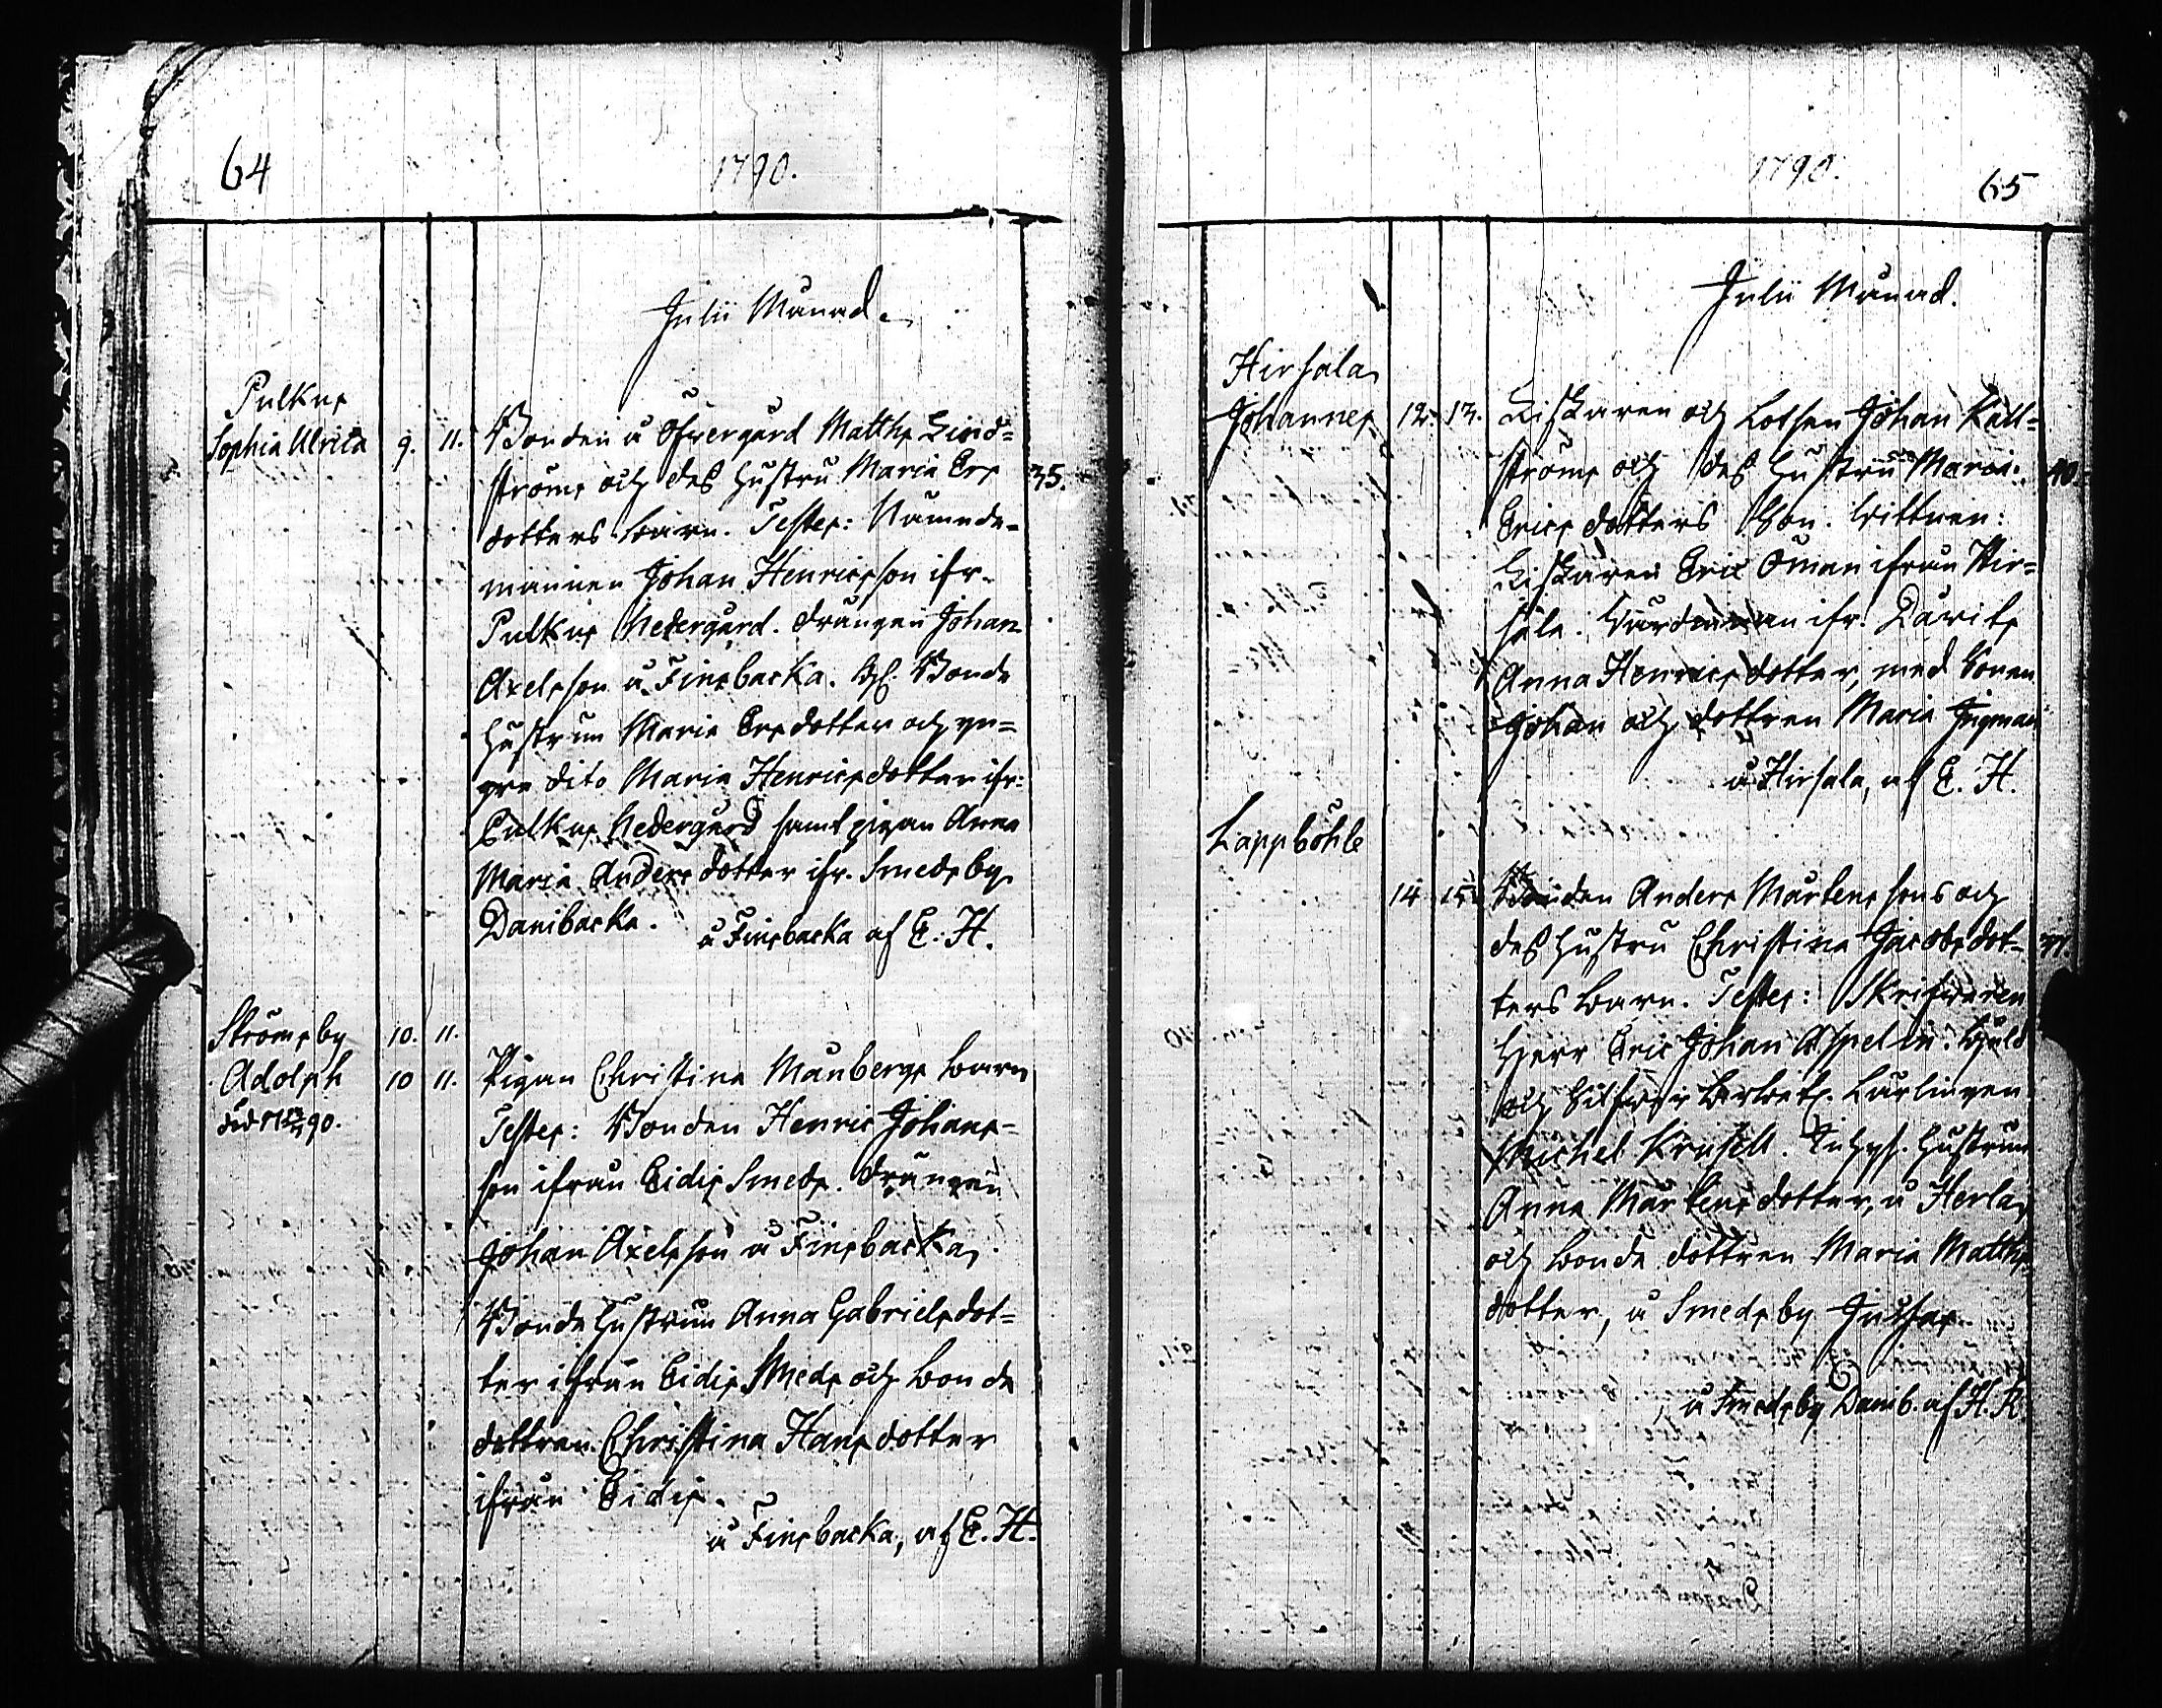 64
1790.
Julii Månad.
Pulkus
Sophia Ulrica 9. 11. Bonden å Öfvergård Matths Lind=
ströms och des hustru Maria Ers 35.
dotters barn. Testes: Nämnde=
mannen Johan Henricsson ifr.
Pulkus Nedergård. Drängen Johan
Axelsson å Finsbacka. Bonde
hustrun Maria Ersdotter och yn=
gre dito Maria Henricsdotter ifr:
Pulkus Nedergård samt pigan Anna
Maria Andersdotter ifr. Smedsby
Danibacka. å Finsbacka af E. H.
Strömsby 10. 11.
Adolph 10 11. Pigan Christina Manbergs barn
död 90. Testes: Bonden Henric Johans=
son ifrån Eidis Smeds. Drängen
Johan Axelsson å Finsbacka,
Bonde hustrun Anna Gabrielsdot=
ter ifrån Eidis Smeds och bonde
dottren Christina Hansdotter
ifrån Eidis.
å Finsbacka, af E. H.
1790.
65
Julii Månad.
Hirsala
Johannes 12. 13. Fiskaren och Lotsen Johan Käll=
ströms och des hustru Maria 40.
Erics dotters Son. Vittnen:
Fiskaren Eric Öman ifrån Hir=
sala. ifr. Davits
Anna Henricsdotter, med Sonen
Johan och dottren Maria Ingman
å Hirsala, af E. H.
Lappböhle
14 15. Bonden Anders Mårtenssons och
des hustru Christina Jacobsdot= 37.
ters barn. Testes: Skrifvaren
Herr Eric Johan Aspelin. Guld
och Silfver Lärlingen
Michel Krusell. hustrun
Anna Mårtensdotter, å Herla,
och bonde dottren Maria Matths
dotter, å Smedsby Juthas.
å Smedsby Danib. af H. R